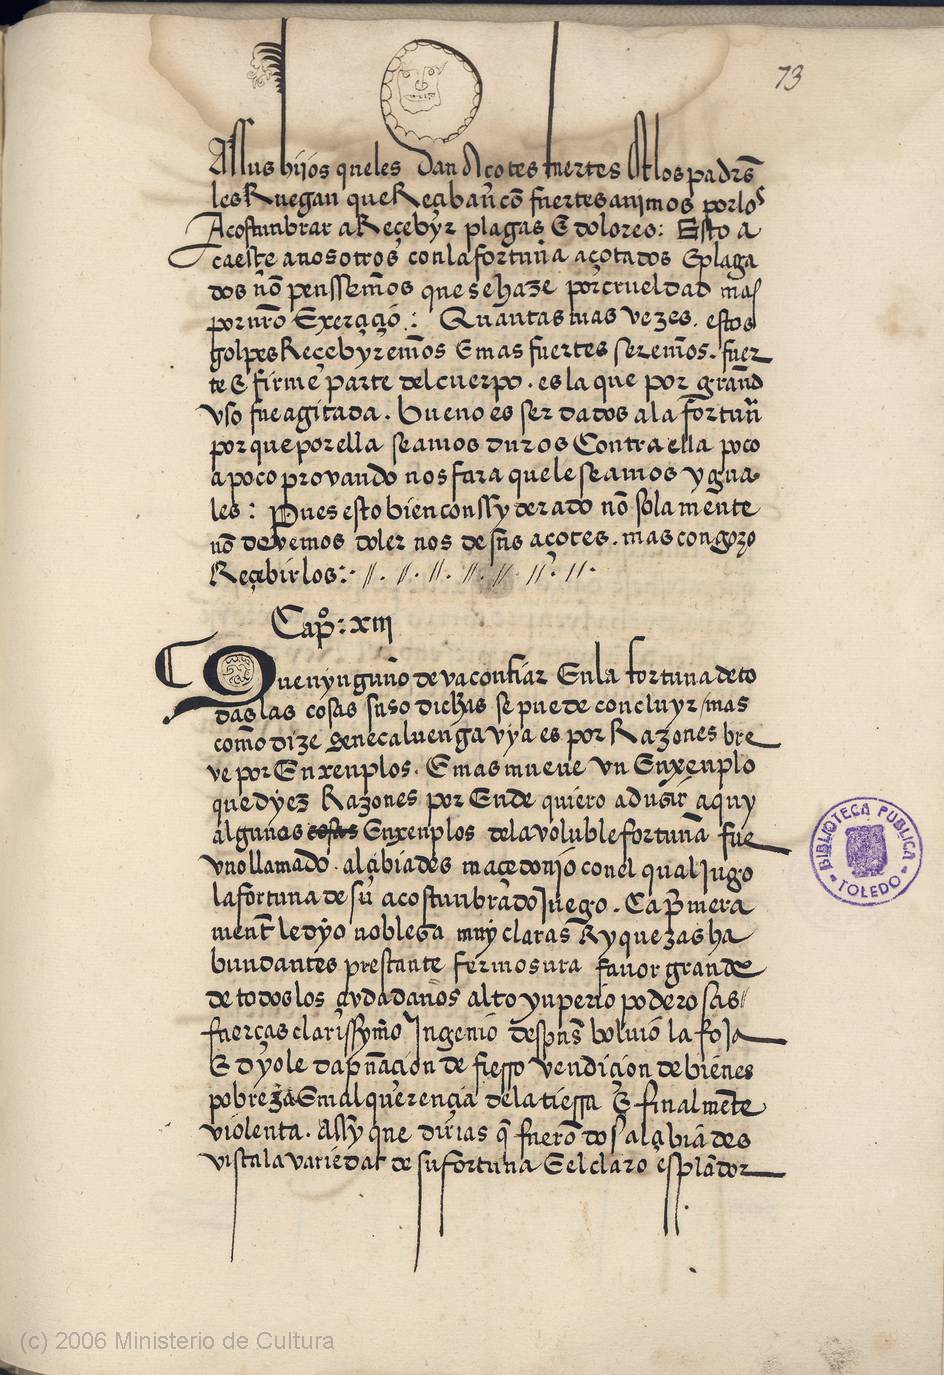 73
Assus hijos que les dan Acotes fuertes Atlos padrẽs
les Ruegan que Reciban cõ fuertes animos por los
Acostunbrar a Reçebyr plagas E dolores: Esto a
caesçe a nosotros con la fortuña açotados E plaga
dos nõ penssemos que se haze por crueldad mas
por nrõ Exerçiçio: Quantas mas vezes. estos
golpes Reçebyremos E mas fuertes seremos. fuer
te E firme parte del cuerpo. es la que por grand
vso fue agitada. Bueno es ser dados a la fortuñ
por que por ella seamos duros Contra ella poco
a poco provando nos fara que le seamos ygua
les: Pues esto bien conssyderado nõ sola mente
nõ devemos doler nos de sus açotes. mas con gozo
Reçebir los:· //. //. //. //. //. //. //.
Capº: xiii
Que nynguno deva confiar En la fortuna de to
das las cosas suso dichas se puede concluyr/mas
como dize seneca luenga vya es por Razones bre
ve por Enxenplos. E mas mueve vn Enxenplo
que dyez Razones por Ende quiero adusir aquy
algunos cosas Enxenplos de la voluble fortuna fue
vno llamado. alçibiades maçedonio con el qual jugo
la fortuna de su acostunbrado juego. Ca primera
ment le dyo noblesa muy claras Ryquezas ha
bundantes prestante fermosura favor grande
de todos los çivdadanos alto ynperio poderosas
fuerças clarissymo Ingenio despues bolvio la foja
E dyole dapnacion de fiesso vendicion de bienes
pobreza E mal querençia de la tiessa E finalmente
violenta. Assy que dirias q̃ fuerõ dos alçbiades
vista la variedat de su fortuna E el claro esplandor
BIBLIOTECA PUBLICA
TOLEDO
(c) 2006 Ministerio de Cultura